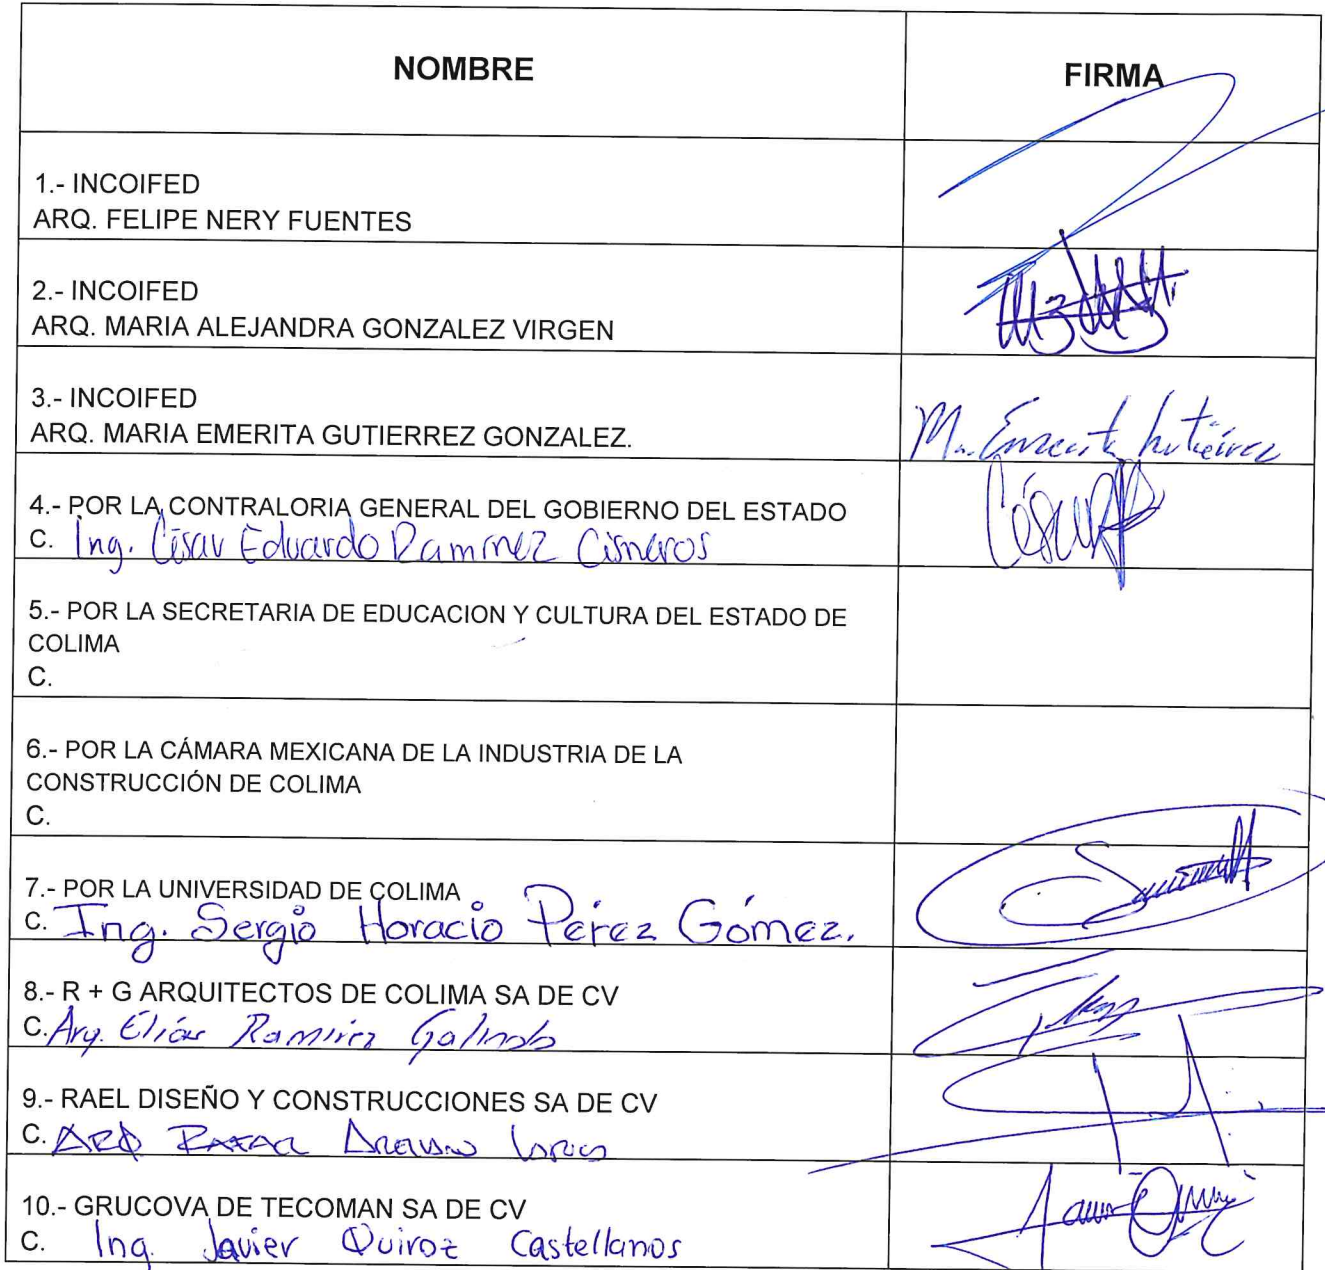 NOMBRE FIRMA
1.- INCOIFED
ARQ. FELIPE NERY FUENTES
2.- INCOIFED
ARQ. MARIA ALEJANDRA GONZALEZ VIRGEN
3.- INCOIFED
ARQ. MARIA EMERITA GUTIERREZ GONZALEZ.
Ma. Emerita Gutiérrez
4.- POR LA CONTRALORIA GENERAL DEL GOBIERNO DEL ESTADO
C. Ing. César Eduardo Ramírez Cisneros
5.- POR LA SECRETARIA DE EDUCACION Y CULTURA DEL ESTADO DE
COLIMA
C.
6.- POR LA CÁMARA MEXICANA DE LA INDUSTRIA DE LA
CONSTRUCCIÓN DE COLIMA
C.
7.- POR LA UNIVERSIDAD DE COLIMA
C. Ing. Sergio Horacio Pérez Gómez.
8.- R + G ARQUITECTOS DE COLIMA SA DE CV
C. Arq. Elías Ramírez Galindo
9.- RAEL DISEÑO Y CONSTRUCCIONES SA DE CV
C. ARQ RAFAEL
10.- GRUCOVA DE TECOMAN SA DE CV
C. Ing. Javier Quiroz Castellanos